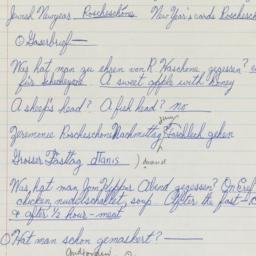 Jewish Newyears Roscheschone New Year's cards Roschesch
Was hat man zu ehren von R. Haschone gegessen?
für schecheyone A sweet apple with honey
A sheep's head? A fish head? no
Zeremonie Roscheschone Nachmittag Taschlech gehen
Grosser Fasttag
Was hat man Jom Kippur Abend gegessen? On Eref
chicken, nudel schallet, soup. After the fast-
& after ½ hour - meat
Hat man schon gemaskert?